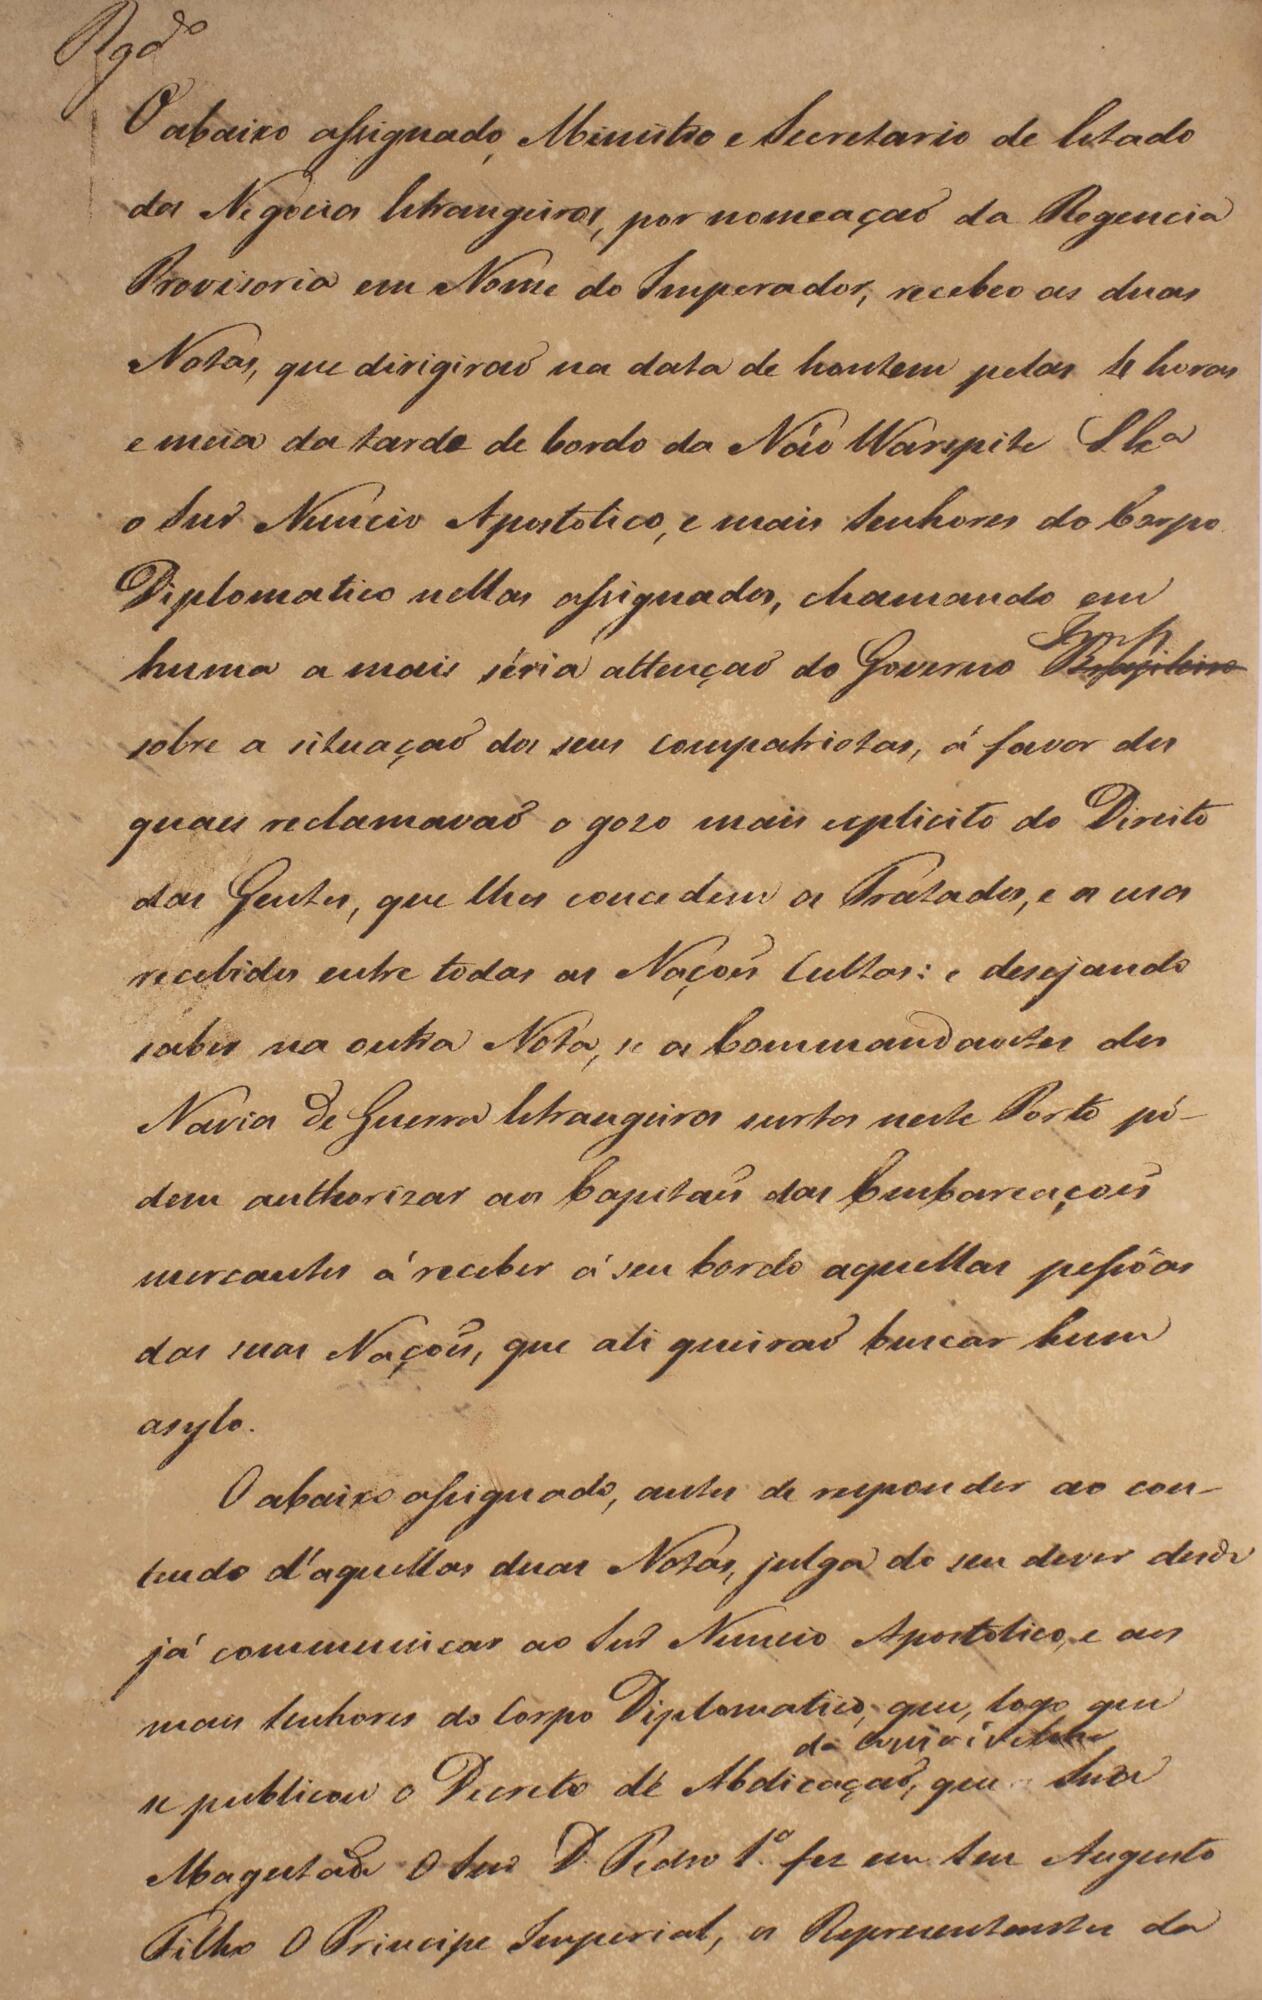 Rgdo
O abaixo assignado, Ministro e Secretario de Estado
dos Negocios Estrangeiros, por nomeação da Regencia
Provisoria em Nome do Imperador, recebeo as duas
Notas, que dirigirão na data de hontem pelas 4 horas
e meia da tarde de bordo da Náo Warspite S. Exa
o Snr Nuncio Apostolico, e mais Senhores do Corpo
Diplomatico nellas assignados, chamando em
huma a mais séria attenção do Governo Brasileiro
Imp
sobre a situação dos seus compatriotas, á favor dos
quaes reclamavão o gozo mais explicito do Direito
das Gentes, que lhes concedem os Tratados, e os usos
recebidos entre todas as Nações Cultas: e desejando
saber na outra Nota, se os Commandantes dos
Navios de Guerra Estrangeiros surtos neste Porto pó-
dem authorizar aos Capitães das Embarcações
mercantes á receber á seu bordo aquellas pessôas
das suas Nações, que ali queirão buscar hum
asylo.
O abaixo assignado, antes de responder ao con-
teudo d'aquellas duas Notas, julga do seu dever desde
já communicar ao Snr Nuncio Apostolico, e aos
mais Senhores do Corpo Diplomatico, que, logo que
da
se publicou o Decreto de Abdicação, que Sua
Magestade O Snr D. Pedro 1.º fez em Seu Augusto
Filho O Principe Imperial, os Representantes da